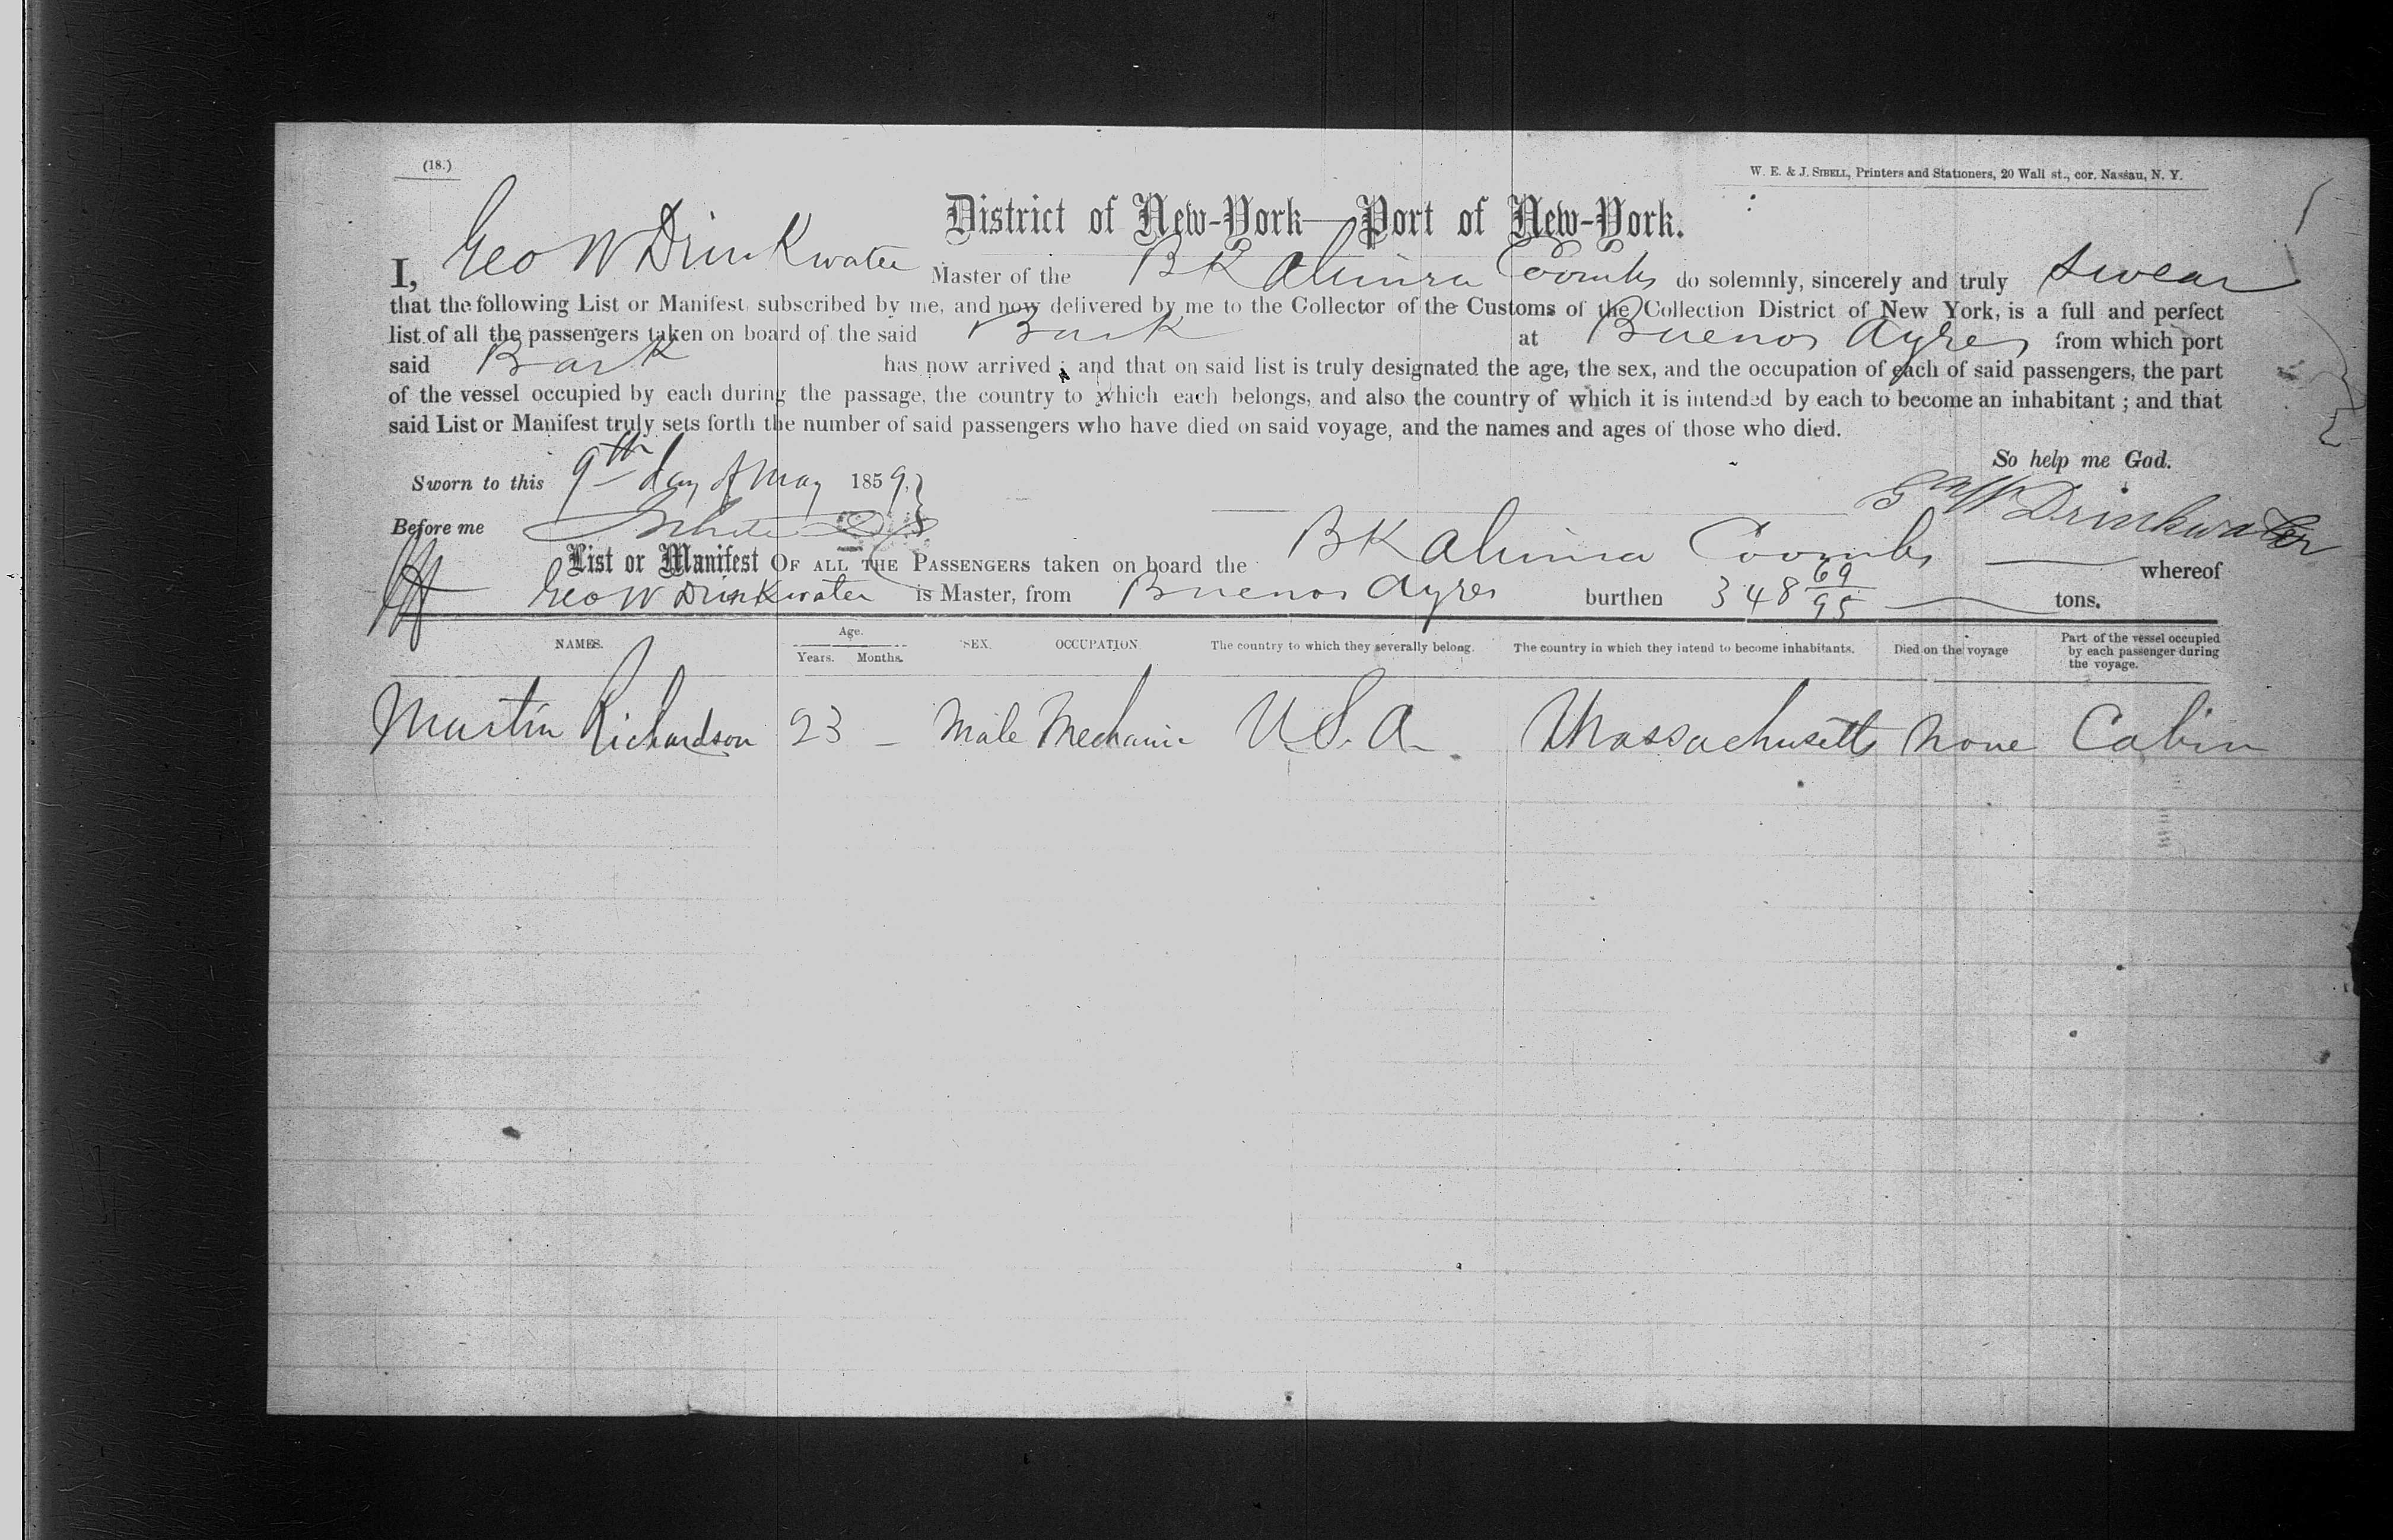 (18.)
W. E. & J. SIBELL, Printers and Stationers, 20 Wall st., cor. Nassau, N. Y.
District of New-York—Port of New-York.
I, Geo W Drinkwater Master of the BK Almira Coombs do solemnly, sincerely and truly swear
that the following List or Manifest, subscribed by me, and now delivered by me to the Collector of the Customs of the Collection District of New York, is a full and perfect
list of all the passengers taken on board of the said Bark at Buenos Ayres from which port
said Bark has now arrived ; and that on said list is truly designated the age, the sex, and the occupation of each of said passengers, the part
of the vessel occupied by each during the passage, the country to which each belongs, and also the country of which it is intended by each to become an inhabitant ; and that
said List or Manifest truly sets forth the number of said passengers who have died on said voyage, and the names and ages of those who died.
So help me God.
Sworn to this 9th day of May 1859.
Geo W Drinkwater
Before me
List or Manifest OF ALL THE PASSENGERS taken on board the BK Almira Coombs whereof
Geo W Drinkwater is Master, from Buenos Ayres burthen 348 69/95 tons.
NAMES. Age. Years. Months. SEX. OCCUPATION. The country to which they severally belong. The country in which they intend to become inhabitants. Died on the voyage Part of the vessel occupied by each passenger during the voyage.
Martin Richardson 23 – Male Mechanic U.S.A. Massachusetts None Cabin